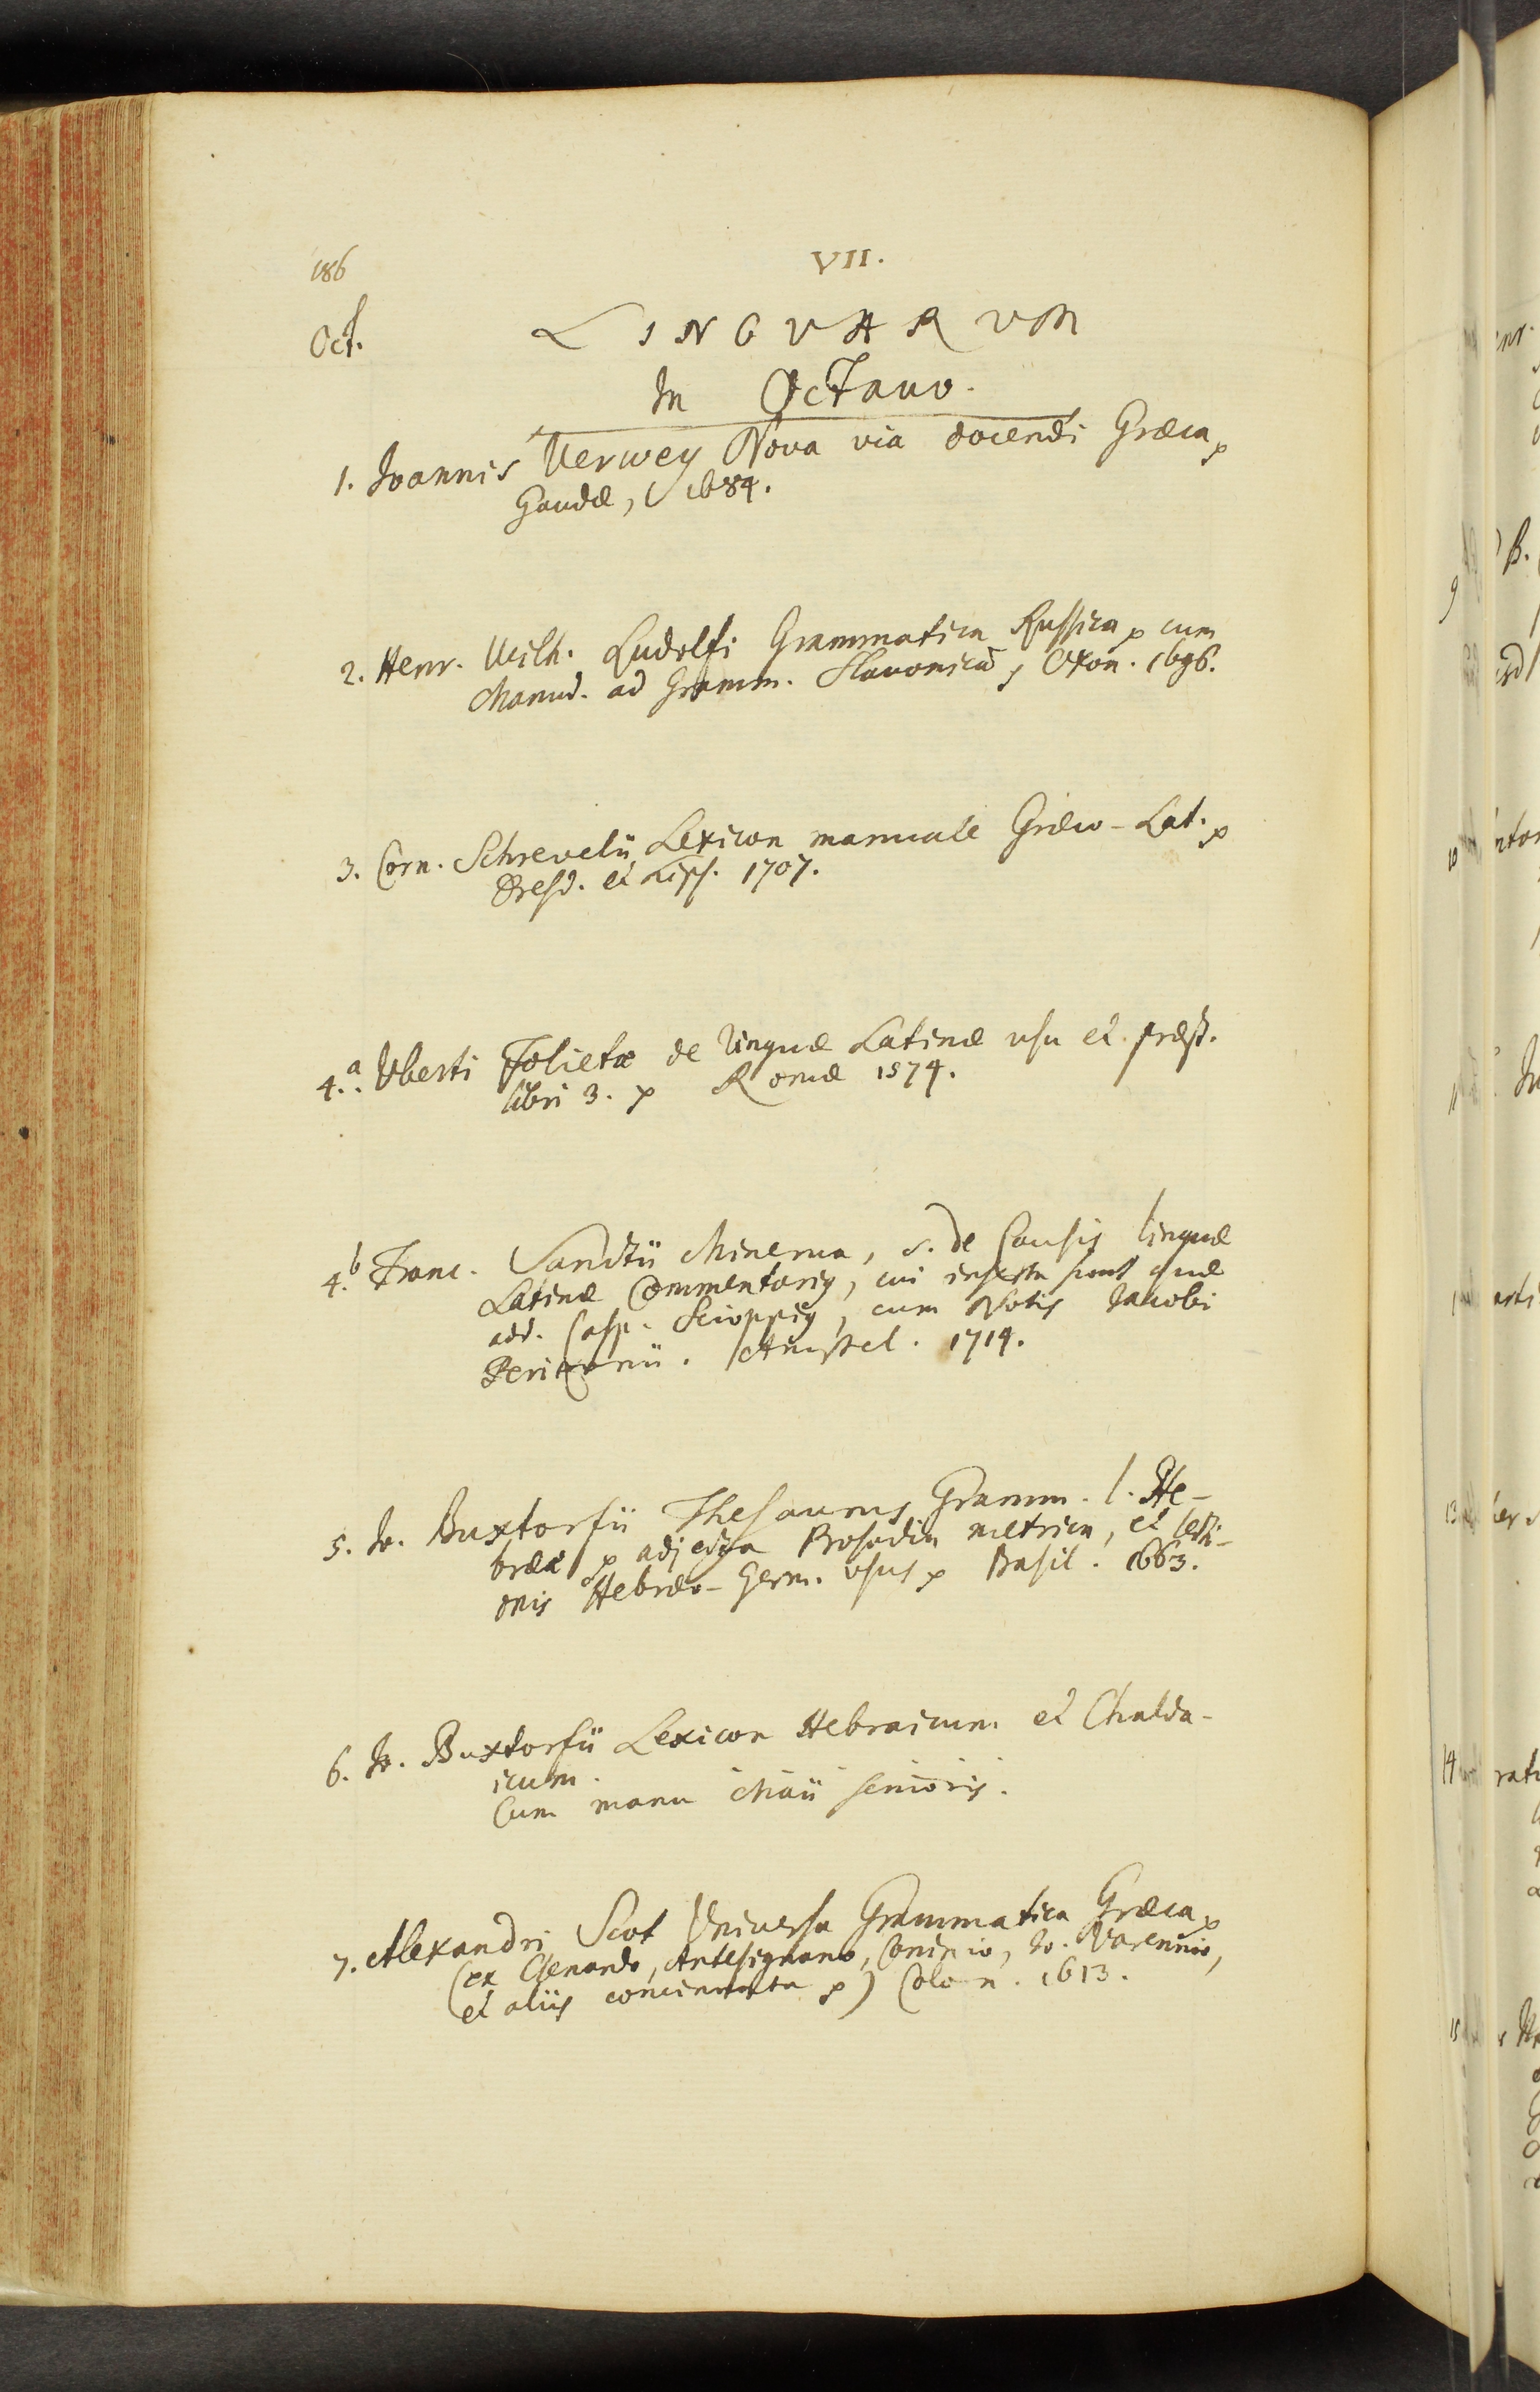 186
VII.
Oct.
LINGVARVM
In Octavo.
1. Ioannis Verwey Nova via docendi Græca
Gaudæ, 1684.
2. Henr. Wilh. Ludolfi Grammatica Russica cum
Manud. ad Gramm. Slavonicā, Oxon. 1696.
3. Corn. Schrevelii Lexicon manuale Græco-Lat.
Dresd. et Lips. 1707.
4.a. Vberti Folietæ de linguæ Latinæ vsu et præst.
libri 3. Romæ 1574.
4.b Franc. Sanctii Minerva, s. de Causis linguæ
Latinæ Commentarius, cui inserta sunt quæ
add. Casp. Scioppius, cum Notis Iacobi
Perizonii. Amstel. 1714.
5. Io. Buxtorfii Thesaurus Gramm. l. He-
brææ adjecta Prosodia metrica, et lecti-
onis Hebræo-Germ. vsus Basil. 1663.
6. Io. Buxtorfii Lexicon Hebraicum et Chalda-
icum.
Cum manu Maii senioris.
7. Alexandri Scot Vniversa Grammatica Græca
(ex Clenardo, Antesignano, Io. Varennio,
et aliis concinnata) Colon. 1613.